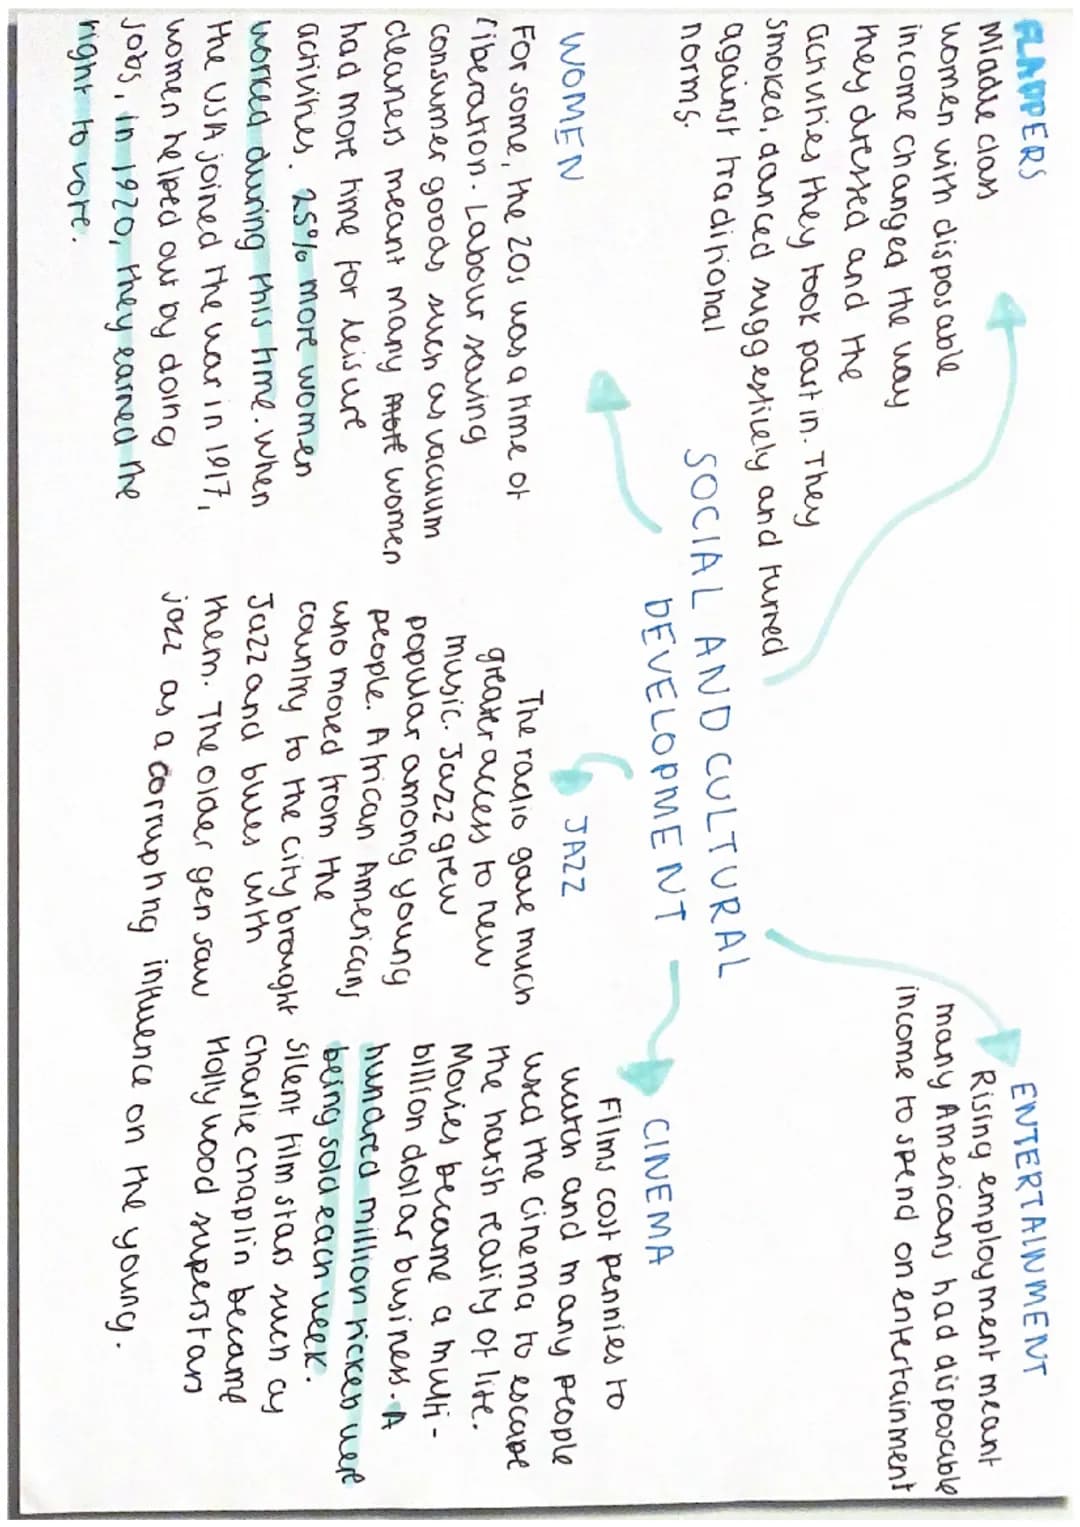 FLAPPERS
Middle class
women with disposable
income changed the way
they dressed and the
activities they took part in. They
smoked, danced suggestively and turned
against traditional
norms.
ENTERTAINMENT
Rising employment meant
many Americans had disposable
income to spend on entertainment
SOCIAL AND CULTURAL
DEVELOPMENT
WOMEN
For some, the 20s was a time of
liberation. Labour saving
consumer goods such as vacuum
cleaners meant many more women
had more time for leisure
activities. 25% more women
worked during this time. When
the USA joined the war in 1917,
women helped out by doing
jobs, in 1920, they earned the
right to vote.
JAZZ
The radio gave much
greater access to new
music. Jazz grew
popular among young
people. African Americans
who moved from the
country to the city brought
Jazz and blues with
them. The older gen saw
jazz as a corrupting influence on the young.
CINEMA
Films cost pennies to
watch and many people
used the cinema to escape
the harsh reality of life.
Movies became a multi-
billion dollar business. A
hundred million tickets were
being sold each week.
Silent film stars such as
Charlie Chaplin became
Hollywood superstars